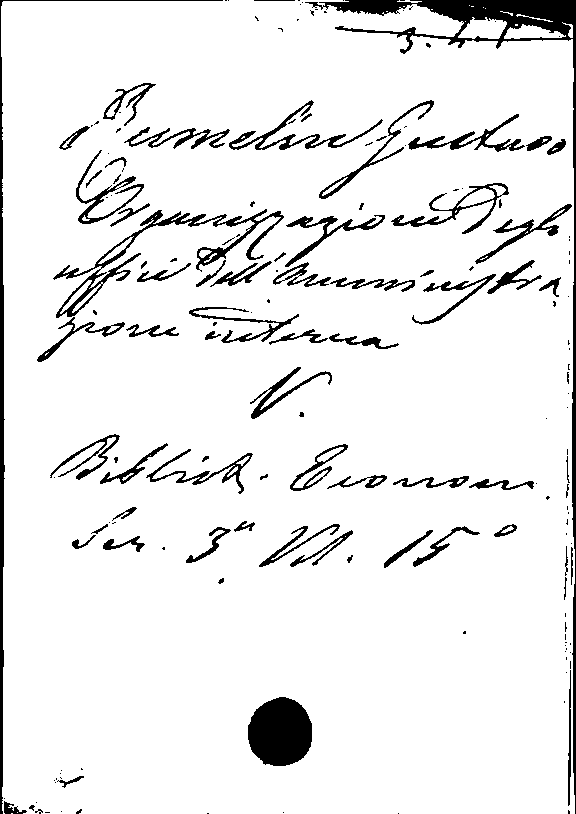 3. 4. 1
Rumelin Gustavo
Organizzazione degli
uffici dell'Amministra
zione interna
V.
Bibliot. Econom.
Ser. 3ª Vol. 15º